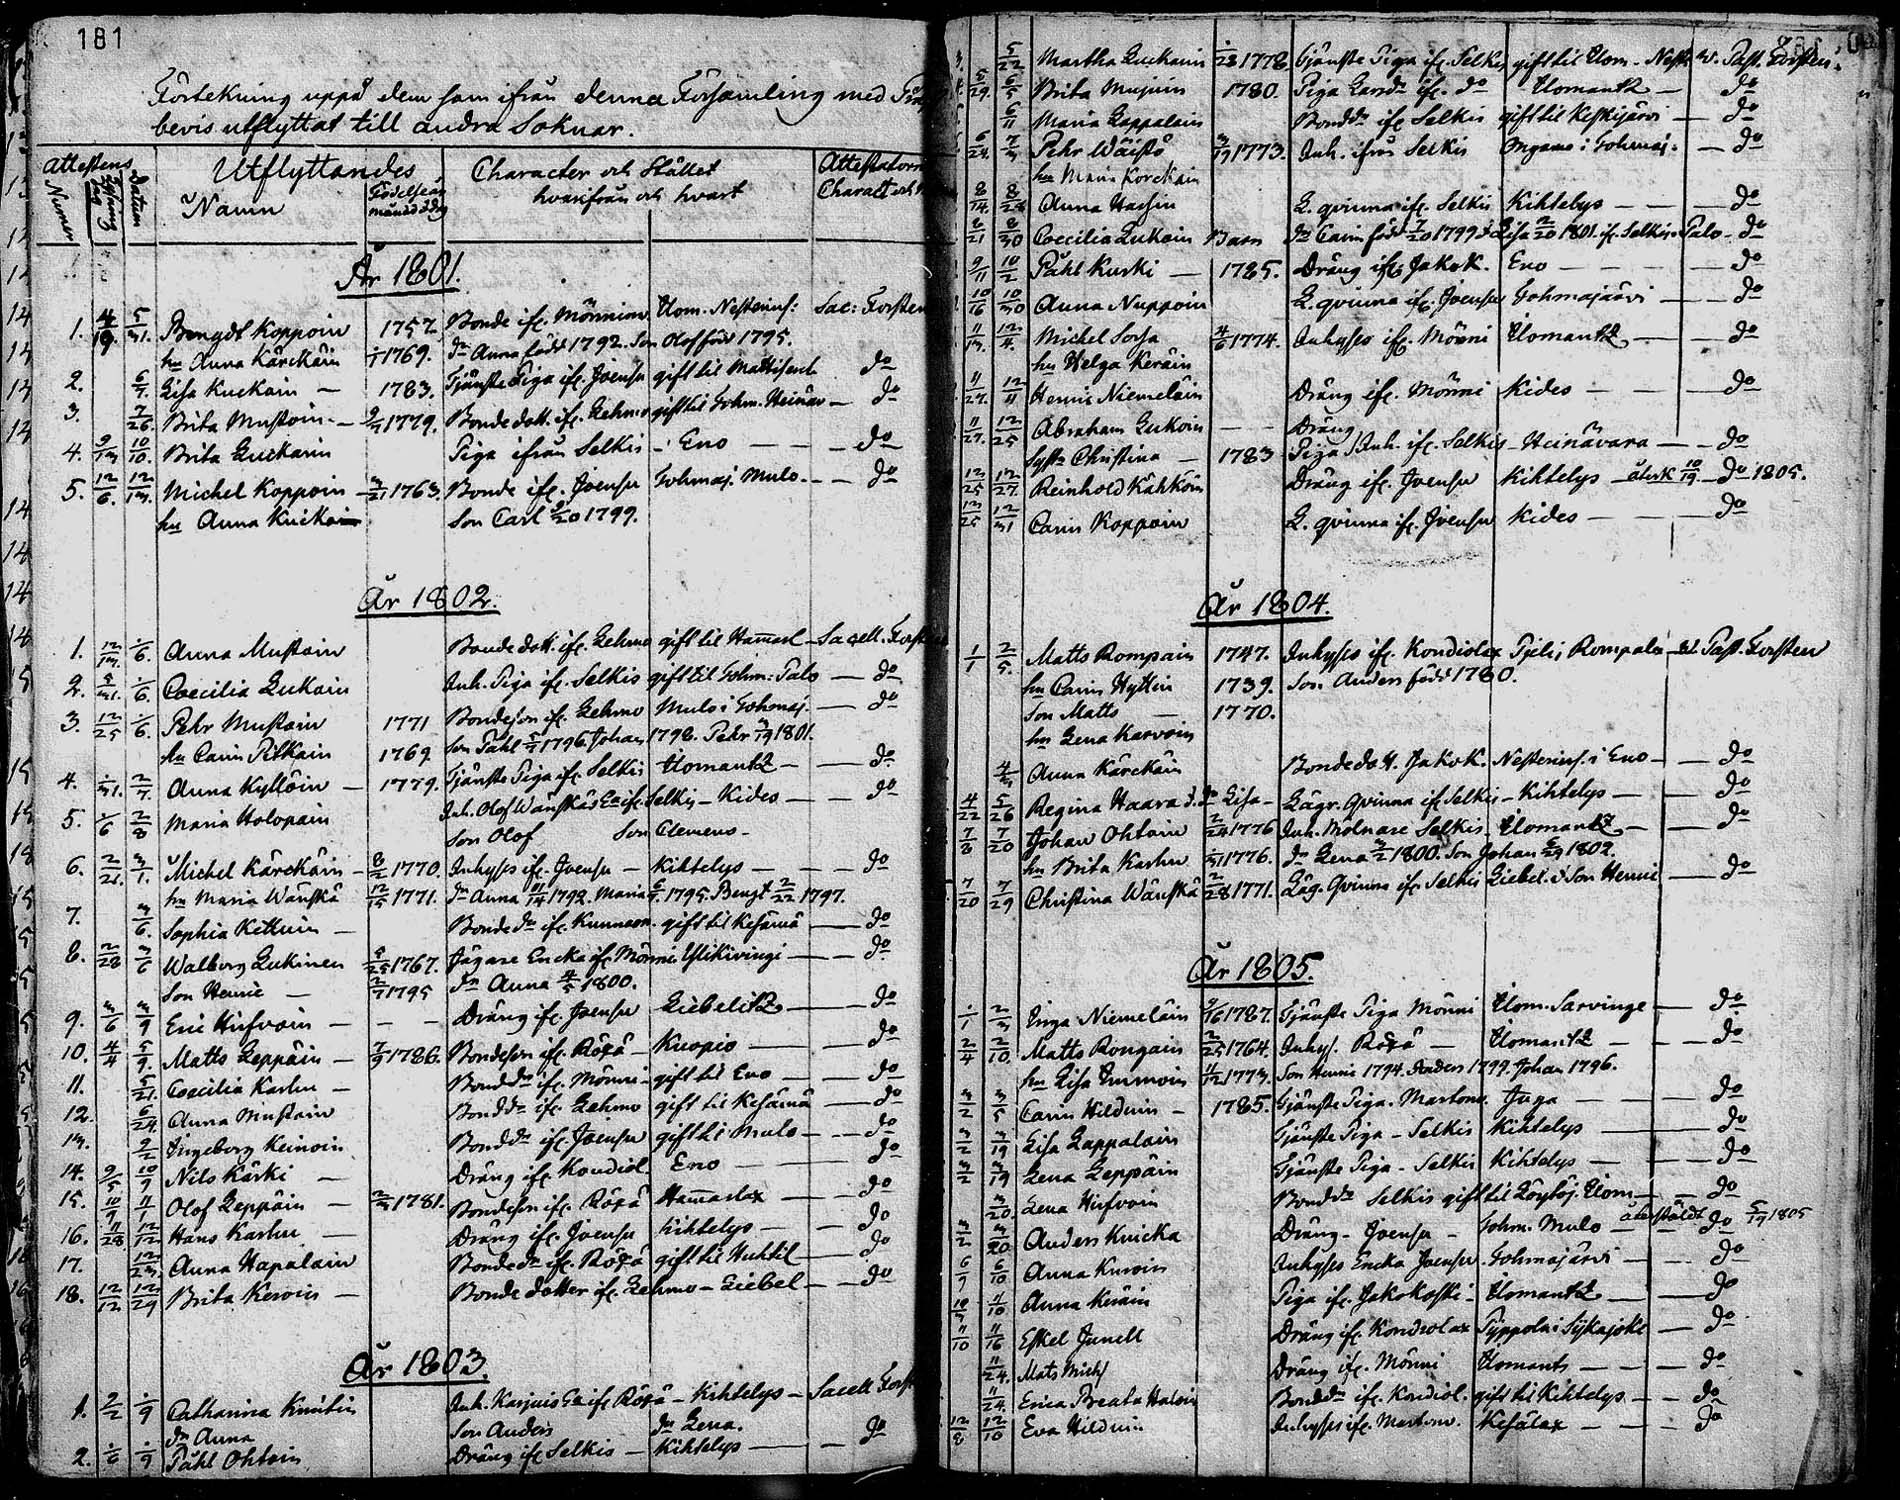 181
Förtekning uppå dem som ifrån denna Församling med
bevis utflyttat till andra Soknar.
Attestens
Utflyttandes
Character och Stället
Attestatorn
Numer
Datum
Namn
Födelseår
månad o dag
hvarifrån och hvart
Charact och
År 1801.
1. 4/19. 5/31. Bengdt Koppoin 1757. Bonde ifr. Mönni Ilom. Nesterins: Sac: Forsten
hu Anna Kärckäin 1/1 1769. dr Anna född 1792. Son Olof född 1795.
2. 6/7. Lisa Kuckain – 1783. Tjänste Piga ifr. Joensu gift til do
3. 7/26. Brita Mustoin – 1779. Bonde dott. ifr. Lehmo gift til Tohm. Heinäv – do
4. 9/13 10/10. Brita Luckarin Piga ifrån Selkis – Eno – – do
5. 12/6. 12/13. Michel Koppoin 3/21 1763. Bonde ifr. Joensu Tohmaj. Mulo – do
hu Anna Kuckain Son Carl 1799.
År 1802.
1. 12/13. 1/6. Anna Mustoin Bonde dott. ifr. Lehmo gift til Hamasl – Sacell. Forsten
2. 5/31. 1/6. Coecilia Lukain Inh. Piga ifr. Selkis gift til Tohm. Palo – do
3. 12/25 1/6. Pehr Mustoin 1771 Bondeson ifr. Lehmo Mulo i Tohmaj. – do
hu Carin Pitkäin 1769 Son Påhl 1796. Johan 1798. Pehr 3/19 1801.
4. 1/31. 2/7. Anna Kyllöin – 1779. Tjänste Piga ifr. Selkis Ilomantz – – do
5. 1/6 2/8 Maria Holopain Inh. Olof Wänskäs Ea ifr. Selkis – Kides – – do
Son Olof Son Clemens –
6. 2/21. 3/1. Michel Kärckäin – 8/2 1770. Inhyses ifr. Joensu – Kihtelys – – do
hu Maria Wänskä 12/15 1771. dr Anna 11/14 1792. Maria 1795. Bengt 2/22 1797.
7. 3/6. Sophia Kettuin – Bonde dr ifr. Kunnasn. gift til Kesämä – do
8. 2/28 3/6 Walborg Lukinen 5/25 1767. Jägare Encka ifr. Mönni Ylikivingi – – do
Son Henric – 2/7 1795 dr Anna 4/5 1800.
9. 3/6 3/9 Eric Hirfvoin – – – Dräng ifr. Joensu Liebelitz – – do
10. 4/4 5/9. Matts Leppäin – 7/9 1786. Bondeson ifr. Röxä – Kuopio – do
11. 5/21. Coecilia Karhu – Bond dr ifr. Mönni – gift til Eno – – do
12. 6/24. Anna Mustoin Bond dr ifr. Lehmo gift til Kesämä – do
13. 9/2 Ingeborg Keinoin Bond dr ifr. Joensu gift til Mulo – – do
14. 9/5 10/9 Nils Kärki – Dräng ifr. Kondiol. Eno – – do
15. 10/9 11/1 Olof Leppäin – 2/3 1781. Bondeson ifr. Röxä Hamaslax – – do
16. 11/28 12/12 Hans Karhu – Dräng ifr. Joensu Kihtelys – – do
17. 12/23. Anna Hapalain Bonde dr ifr. Röxä gift til Huhtil – do
18. 12/12 12/29 Brita Kervin – Bonde dotter ifr. Lehmo – Liebel – – do
År 1803.
1. 2/2 1/9 Catharina Kinnitin Inh. Karjuis Ea ifr. Röxä – Kihtelys – Sacell Forst
dr Anna Son Anders dr Lena.
2. 1/6 1/9 Påhl Ohtoin Dräng ifr. Selkis – Kihtelys – – do
5/22 Martha Luckain 1/28 1778. Tjänste Piga ifr. Selkis gift til Ilom. – Nest. w. Past. Forsten.
5/29. 6/5 Brita Mujuin 1780. Piga ifr. do Ilomantz – do
6/11 Maria Lappalain Bond dr ifr. Selkis gift til Keskijärvi – do
6/24. 7/3 Pehr Wäistö 3/19 1773. Inh. ifrån Selkis Ongamo i Tohmaj. – do
hu Maria Korckain
8/14. 8/28 Anna Hassin L. qvinna ifr. Selkis Kihtelys – – do
8/21 8/30 Coecilia Lukain Barn dr Carin född 7/20 1799 Lisa 2/20 1801. ifr. Selkis. Palo – do
9/11 10/2 Påhl Kurki – 1785. Dräng ifr. Jakok. Eno – – do
10/16 10/30 Anna Nuppoin L. qvinna ifr. Joensu Tohmajärvi – do
11/13. 12/4. Michel Sorsa 4/6 1774. Inhyses ifr. Mönni Ilomantz – do
hu Helga Keräin
11/27. 12/11 Henric Niemeläin Dräng ifr. Mönni Kides – do
11/27. 12/25 Abraham Lukoin – – Dräng
Syster Christina – 1783 Piga Inh. ifr. Selkis – Heinävara – do
12/25 12/27. Reinhold Kähköin Dräng ifr. Joensu Kihtelys återk 10/19. do 1805.
12/25 12/31 Carin Koppoin L. qvinna ifr. Joensu Kides – – do
År 1804.
1/1 2/5. Matts Rompain 1747. Inhyses ifr. Kondiolax Rompala w. Past. Forsten
hu Carin Hyttin 1739. Son Anders född 1780.
Son Matts – 1770.
hu Lena Karvoin
4/3 Anna Kärckäin Bonde dott. Jakok. Nesterins. i Eno – – do
4/22 5/26 Regina Haara d. dr Lisa – Lägr. Qvinna ifr Selkis – Kihtelys – do
7/8 7/20 Johan Ohtoin 2/24 1776 Inh. Molnare Selkis – Ilomantz – do
hu Brita Karhu 1/31 1776. dr Lena 3/2 1800. Son Johan 1802.
7/20 7/29 Christina Wänskä 2/28 1771. Läg. Qvinna ifr Selkis Liebel. d Son Henric – do
År 1805.
1/1 2/3 Inga Niemeläin 9/16 1787. Tjänste Piga Mönni Ilom. Sarvinge – do
2/4 2/10. Matts Rongain 2/25 1764. Inhys. Röxä – Ilomantz – – do
hu Lisa Immoin 11/12 1773. Son Henric 1794. Anders 1799. Johan 1796.
3/2 3/5 Carin Hilduin – 1785. Tjänste Piga. Martono. Juga – – do
3/2 3/19 Lisa Lappalain Tjänste Piga – Selkis Kihtelys – do
3/2 3/19 Lena Leppäin Tjänste Piga – Selkis Kihtelys – – do
3/20. Lena Hirfvoin Bond dr Selkis gift til Löytöj. Ilom – – do
3/2 3/20 Anders Kuicka Dräng – Joensu – Tohm. Mulo – återstäldt do 5/19 1805
6/9 6/10 Anna Kuroin Inhyses Encka Joensu – Tohmajärvi – – do
10/3 11/10 Anna Keräin Piga ifr. Jakokoski – Ilomantz – – do
11/10 11/16 Eskel Junell Dräng ifr. Kondiolax Pyppola i Sijkajoki – do
11/24. Mats Mich Dräng ifr. Mönni Ilomants – – do
11/24. Erica Beata Haloin Bond dr ifr. Kondiol. gift til Kihtelys – – do
12/8 12/10 Eva Hilduin Inhyses ifr. Martono. Kesälax – – do